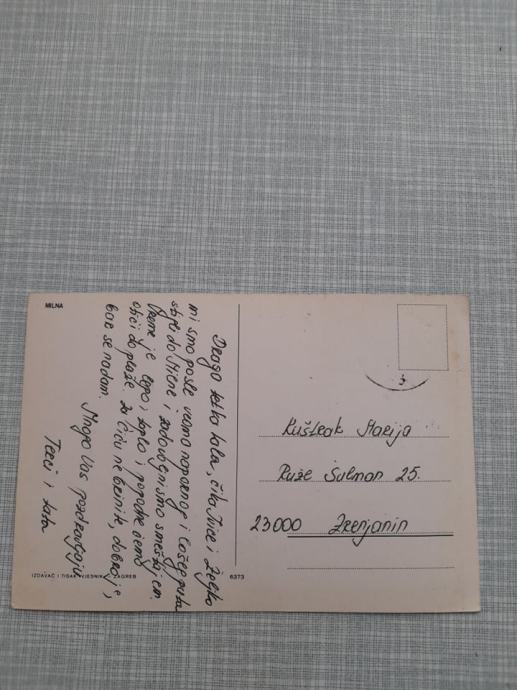 MILNA
Draga tetka Lala, čika Jvice i Željko
mi smo posle veoma napornog i lošeg puta
stigli do Milne i zadovoljni smo smeštajem.
Vreme je lepo i toplo i
otići do plaže. Za Čiču ne brinite, dobro je,
bar se nadam.
Mnogo Vas pozdravljaju
Teci i
IZDAVAČ I TISAK VJESNIK ZAGREB
6373
Kuštrak Marija
Ruže Šulman 25.
23000 Zrenjanin